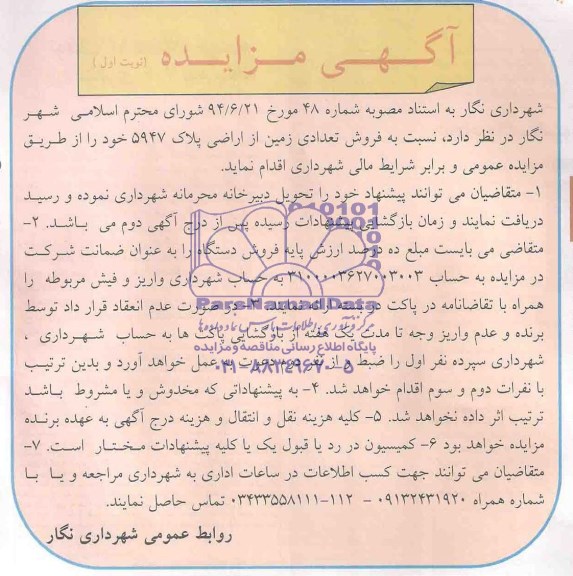 آگهی مزایده (نوبت اول)
شهرداری نگار به استناد مصوبه شماره ۴۸ مورخ ۹۴/۶/۲۱ شورای محترم اسلامی شهر
نگار در نظر دارد، نسبت به فروش تعدادی زمین از اراضی پلاک ۵۹۴۷ خود را از طریق
مزایده عمومی و برابر شرایط مالی شهرداری اقدام نماید.
۱- متقاضیان می توانند پیشنهاد خود را تحویل دبیرخانه محرمانه شهرداری نموده و رسید
دریافت نمایند و زمان بازگشایی پیشنهادات رسیده پس از درج آگهی دوم می باشد. ۲-
متقاضی می بایست مبلغ ده درصد ارزش پایه فروش دستگاه را به عنوان ضمانت شرکت
در مزایده به حساب ۳۱۰۰۰۰۳۶۲۷۰۰۳۰۰۳ به حساب شهرداری واریز و فیش مربوطه را
همراه با تقاضانامه در پاکت در بسته ارائه نمایند. ۳- در صورت عدم انعقاد قرار داد توسط
برنده و عدم واریز وجه تا مدت یک هفته از بازگشایی پاکت ها به حساب شهرداری ،
شهرداری سپرده نفر اول را ضبط و از نفر دوم دعوت به عمل خواهد آورد و بدین ترتیب
با نفرات دوم و سوم اقدام خواهد شد. ۴- به پیشنهاداتی که مخدوش و یا مشروط باشد
ترتیب اثر داده نخواهد شد. ۵- کلیه هزینه نقل و انتقال و هزینه درج آگهی به عهده برنده
مزایده خواهد بود ۶- کمیسیون در رد یا قبول یک یا کلیه پیشنهادات مختار است. ۷-
متقاضیان می توانند جهت کسب اطلاعات در ساعات اداری به شهرداری مراجعه و یا با
شماره همراه ۰۹۱۳۲۴۳۱۹۲۰ - ۱۱۲-۰۳۴۳۳۵۵۸۱۱۱ تماس حاصل نمایند.
روابط عمومی شهرداری نگار
ParsNamadData
پایگاه اطلاع رسانی مناقصه و مزایده
۰۲۱-۸۸۳۴۹۶۷۰-۵